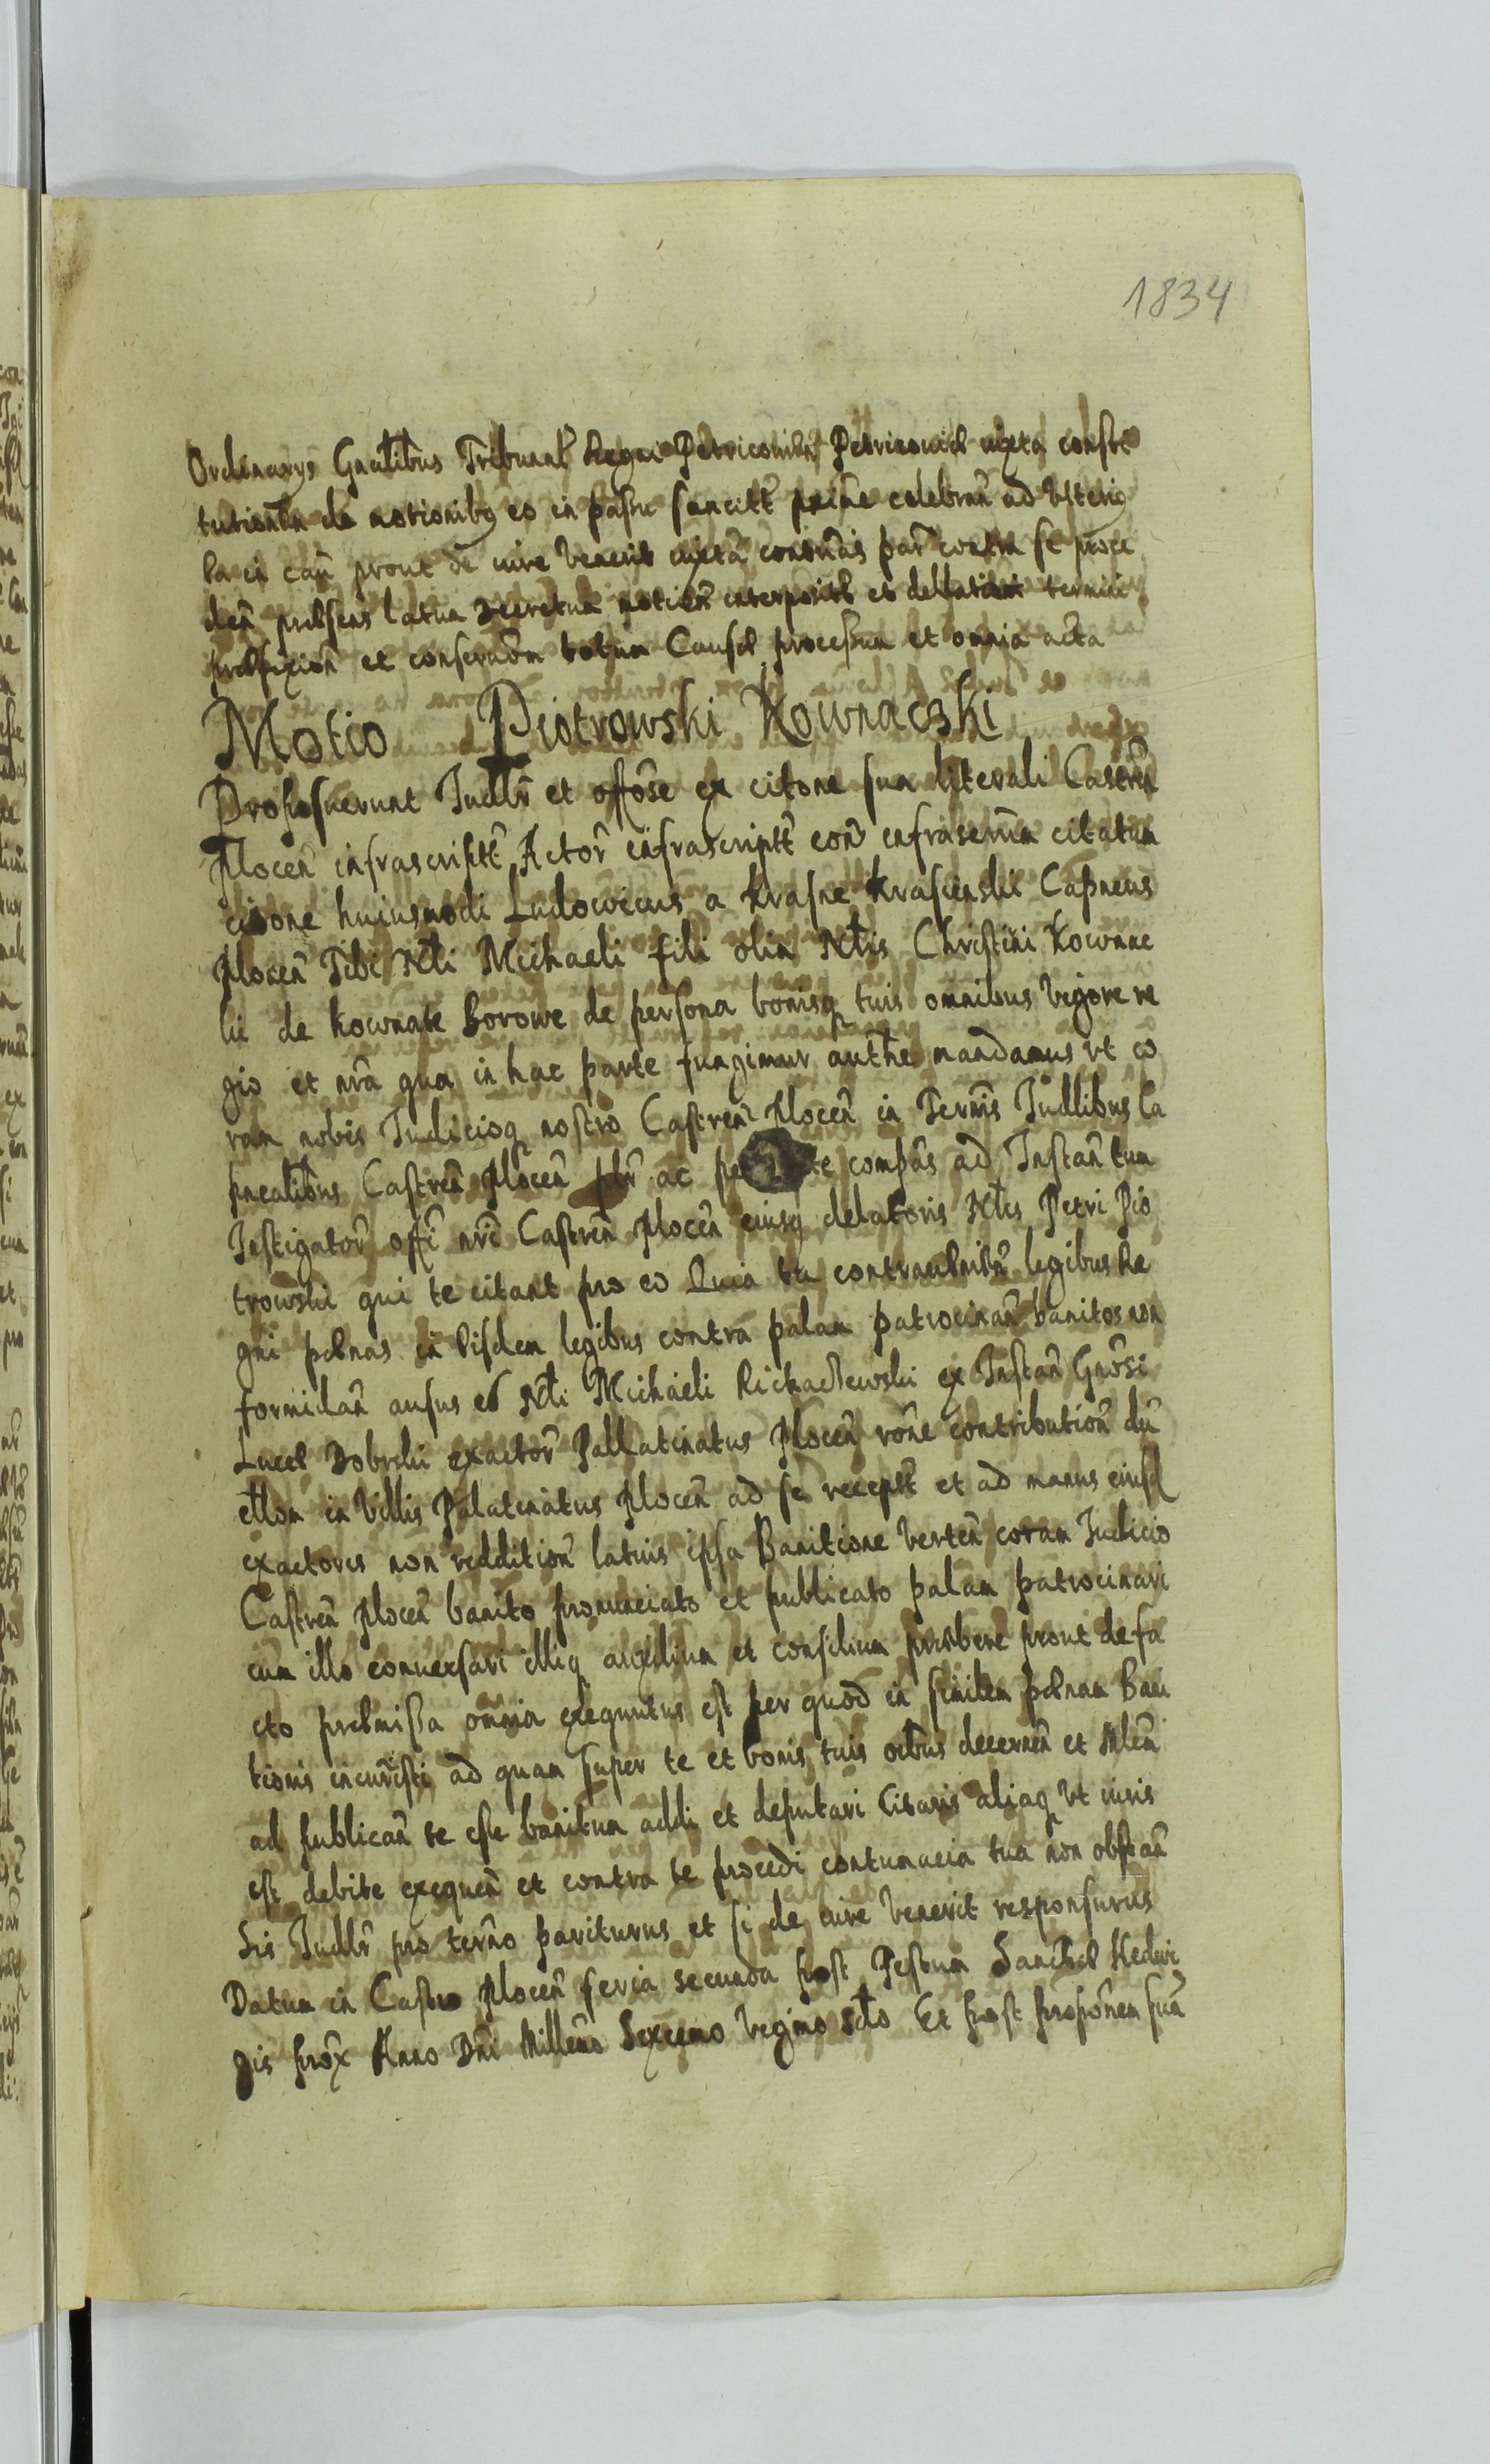 1834
Ordinarys Gnalibus Tribunal Regni Petricovien Petricoviae iuxta consti
tutionem de motionibus eo in passu sancitt prime celebran ad Vlterio
ra in cau prout de iure Venerit iuxta contintis par contra se proce
den praesens latum Decretum motion interposit et dellation termini
praefixion et conseruãm totum Causae processum et omnia acta
Motio Piotrowski Kownaczki
Proposuerunt Judlr et offose ex citone sua literali Castren
Plocen infrascriptt Actor infrascriptt con infrascrum citatum
citone huiusmodi Ludowicus a Krasne Krasienskii Capneus
Plocen Tibi Nbli Michaeli fili olim Nblis Christini Kownac
kii de Kownate Borowe de persona bonisq tuis omnibus Vigore re
gio et nra qua in hac parte fungimur authe mandamus vt co
ram nobis Judicioq nostro Castren Plocen in Termis Judlibus Ca
pnealibus Castren Plocen ac compas ad Instan tum
Instigator offi nri Castren Plocen eiusq delatoris Nblis Petri Pio
trowski qui te citant pro eo Quia tu contravenien legibus Re
gni paenas in iisdem legibus contra palam patrocinan banitos non
formidan ausus es Nbli Michaeli Richaczewski ex Instan Gnosi
Lucae Dobrskii exactor Pallatinatus Plocen rone contribution
in Villis Palatinatus Plocen ad se receptt et ad manus eiusd
exactoris non reddition latius ipsa Banitione Verten coram Judicio
Castren Plocen banito pronunciato et publicato palam patrocinari
cum illo conversari illiq auxilium et consilium praebere prout de fa
cto praemissa omnia exequutus est per quod in similem paenam Bani
tionis incuristi ad quam super te et bonis tuis oibus decernen et Mlem
ad publican te esse banitum addi et deputari Citaris aliaq vt iuris
est debite exequen et contra te procedi contumacia tua non obstan
Sis Judlr pro termo pariturus et si de iure Venerit responsurus
Datum in Castro Plocen feria secunda post Festum Sanctae Hedvi
gis prox Anno Dni Millemo Sexcemo Vegimo scdo Et post proponem suam